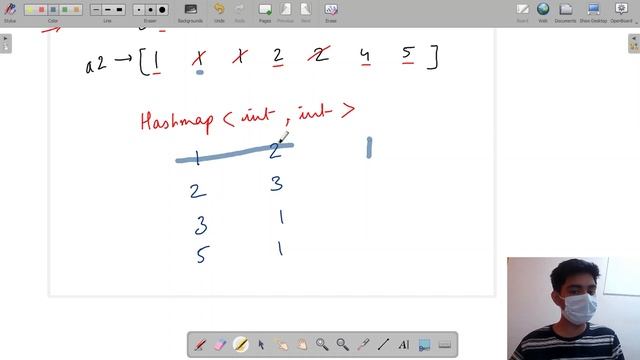 Stylus Color Line Eraser Undo Redo Pages Previous Next Erase Board Documents Show Desktop OpenBoard
a2 → [ 1 1 1 2 2 4 5 ]
Hashmap < int , int >
1 2 1
2 3
3 1
5 1